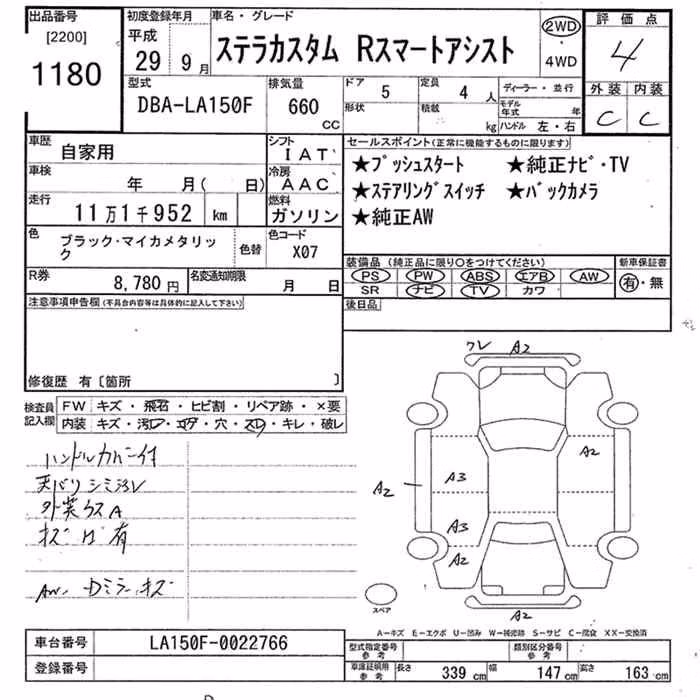 出品番号 初度登録年月 車名・グレード 評価点
[2200] 平成 29年 9月 ステラカスタム Rスマートアシスト 2WD・4WD 4
1180
型式 排気量 ドア 5 定員 4人 ディーラー・並行 外装 内装
DBA-LA150F 660 cc 形状 積載 kg モデル年式 年 ハンドル 左・右 C C
車歴 自家用 シフト IAT セールスポイント(正常に機能するものに限ります)
車検 年 月( 日) 冷房 AAC ★プッシュスタート ★純正ナビ・TV
走行 11万1千952 km 燃料 ガソリン ★ステアリングスイッチ ★バックカメラ
★純正AW
色 ブラック・マイカメタリック 色替 色コード X07
装備品(純正品に限り○をつけてください) 新車保証書
PS PW ABS エアB AW 有・無
SR ナビ TV カワ
R券 8,780円 名変通知期限 月 日
後日品
注意事項申告欄(不具合内容等は具体的に記入して下さい)
修復歴 有〔箇所 〕
検査員記入欄 FW キズ・飛石・ヒビ割・リペア跡・×要
内装 キズ・汚レ・コゲ・穴・スレ・キレ・破レ
ハンドルカバー付
天バリシミ汚レ
外装ウスA
キズ 有
AW. Dミラーキズ
ワレ A2
A2
A2 A3
A3
A2
スペア A2
A-キズ E-エクボ U-凹み W-補修跡 S-サビ C-腐食 XX-交換済
車台番号 LA150F-0022766 型式指定番号 参考 類別区分番号 参考
登録番号 車庫証明用 参考 長さ 339 cm 幅 147 cm 高さ 163 cm